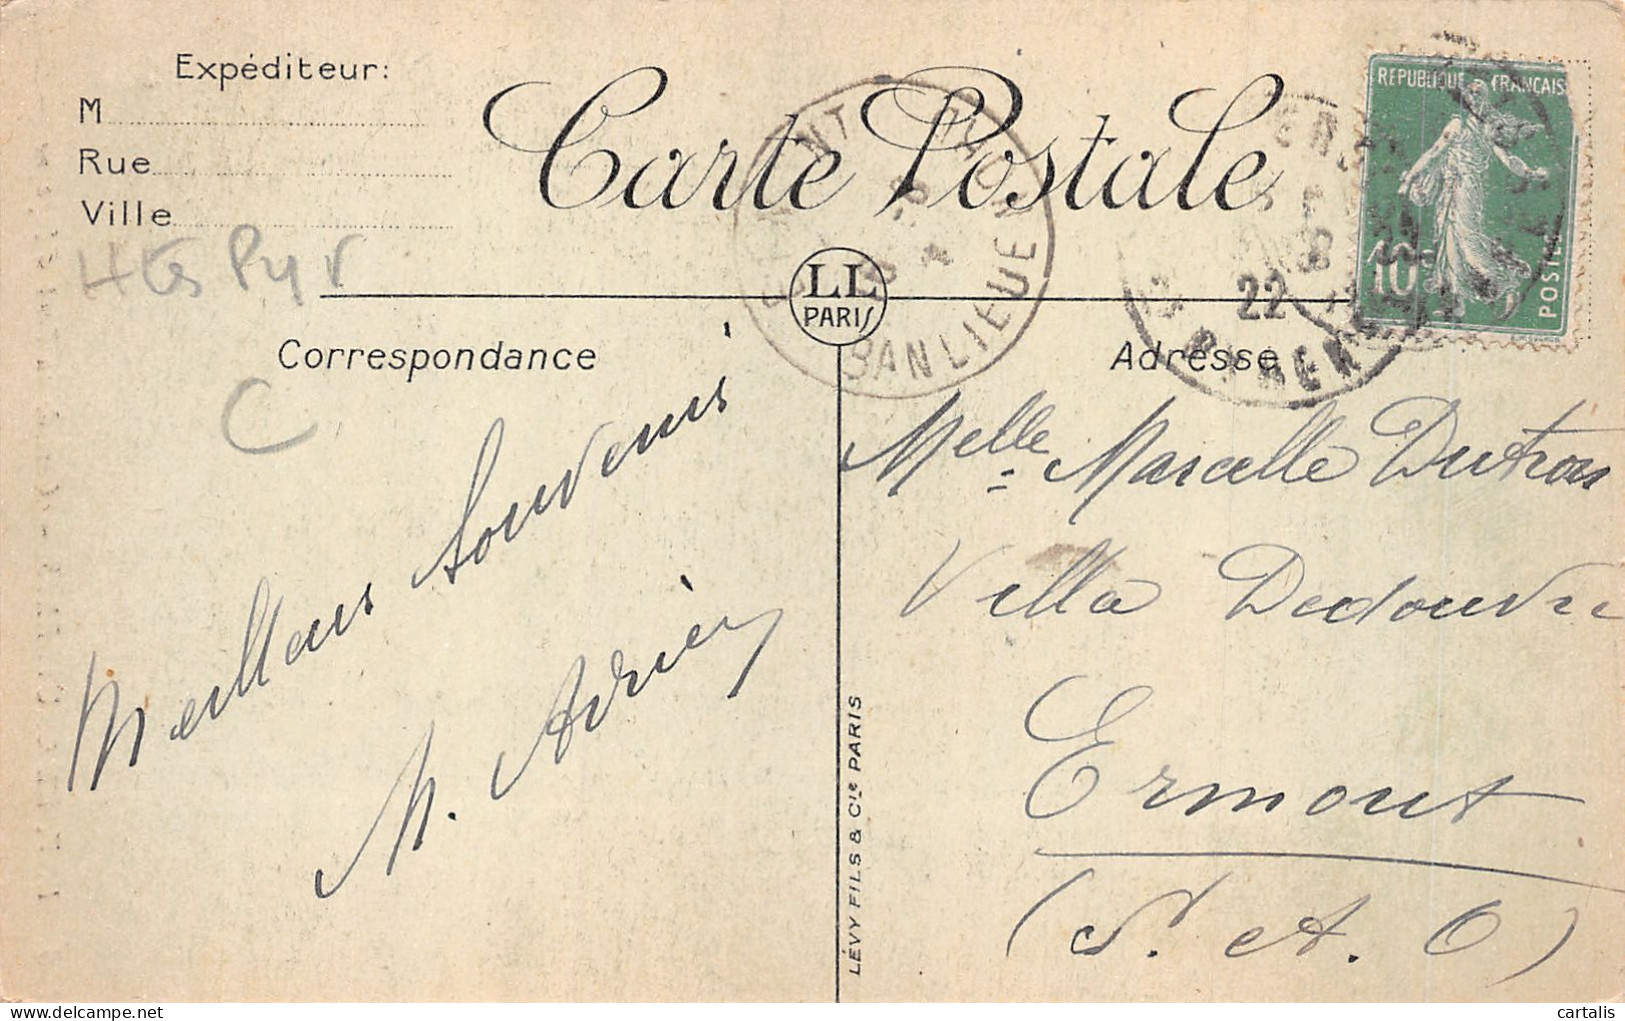 Expéditeur:
M
Rue
Ville
Htes Pyr
Carte Postale
REPUBLIQUE FRANÇAISE
10c
POSTES
22
BANLIEUE
LL
PARIS
Correspondance
Adresse
C
Meilleurs Souvenirs
M. Adrien
Melle Marcelle
Villa
Ermont
(S. et. O)
LÉVY FILS & Cie PARIS
cartalis